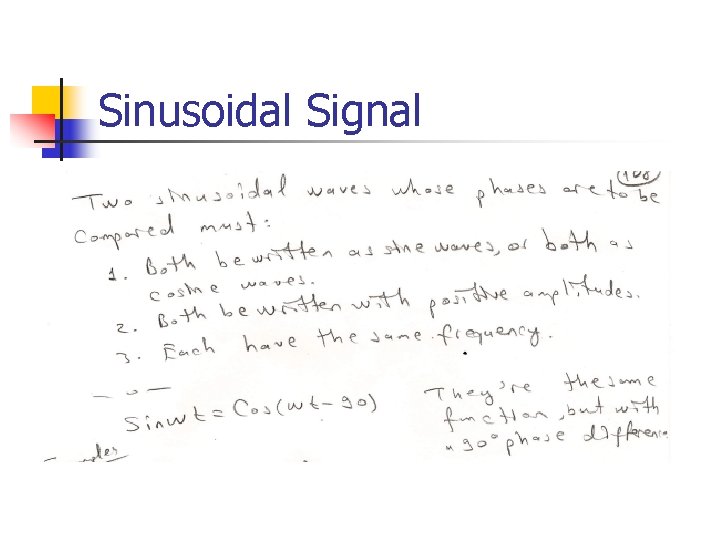 Sinusoidal Signal
Two sinusoidal waves whose phases are to be
compared must:
1. Both be written as sine waves, or both as
cosine waves.
2. Both be written with positive amplitudes.
3. Each have the same frequency.
Sinwt = Cos(wt - 90)
They're the same
function, but with
90° phase difference